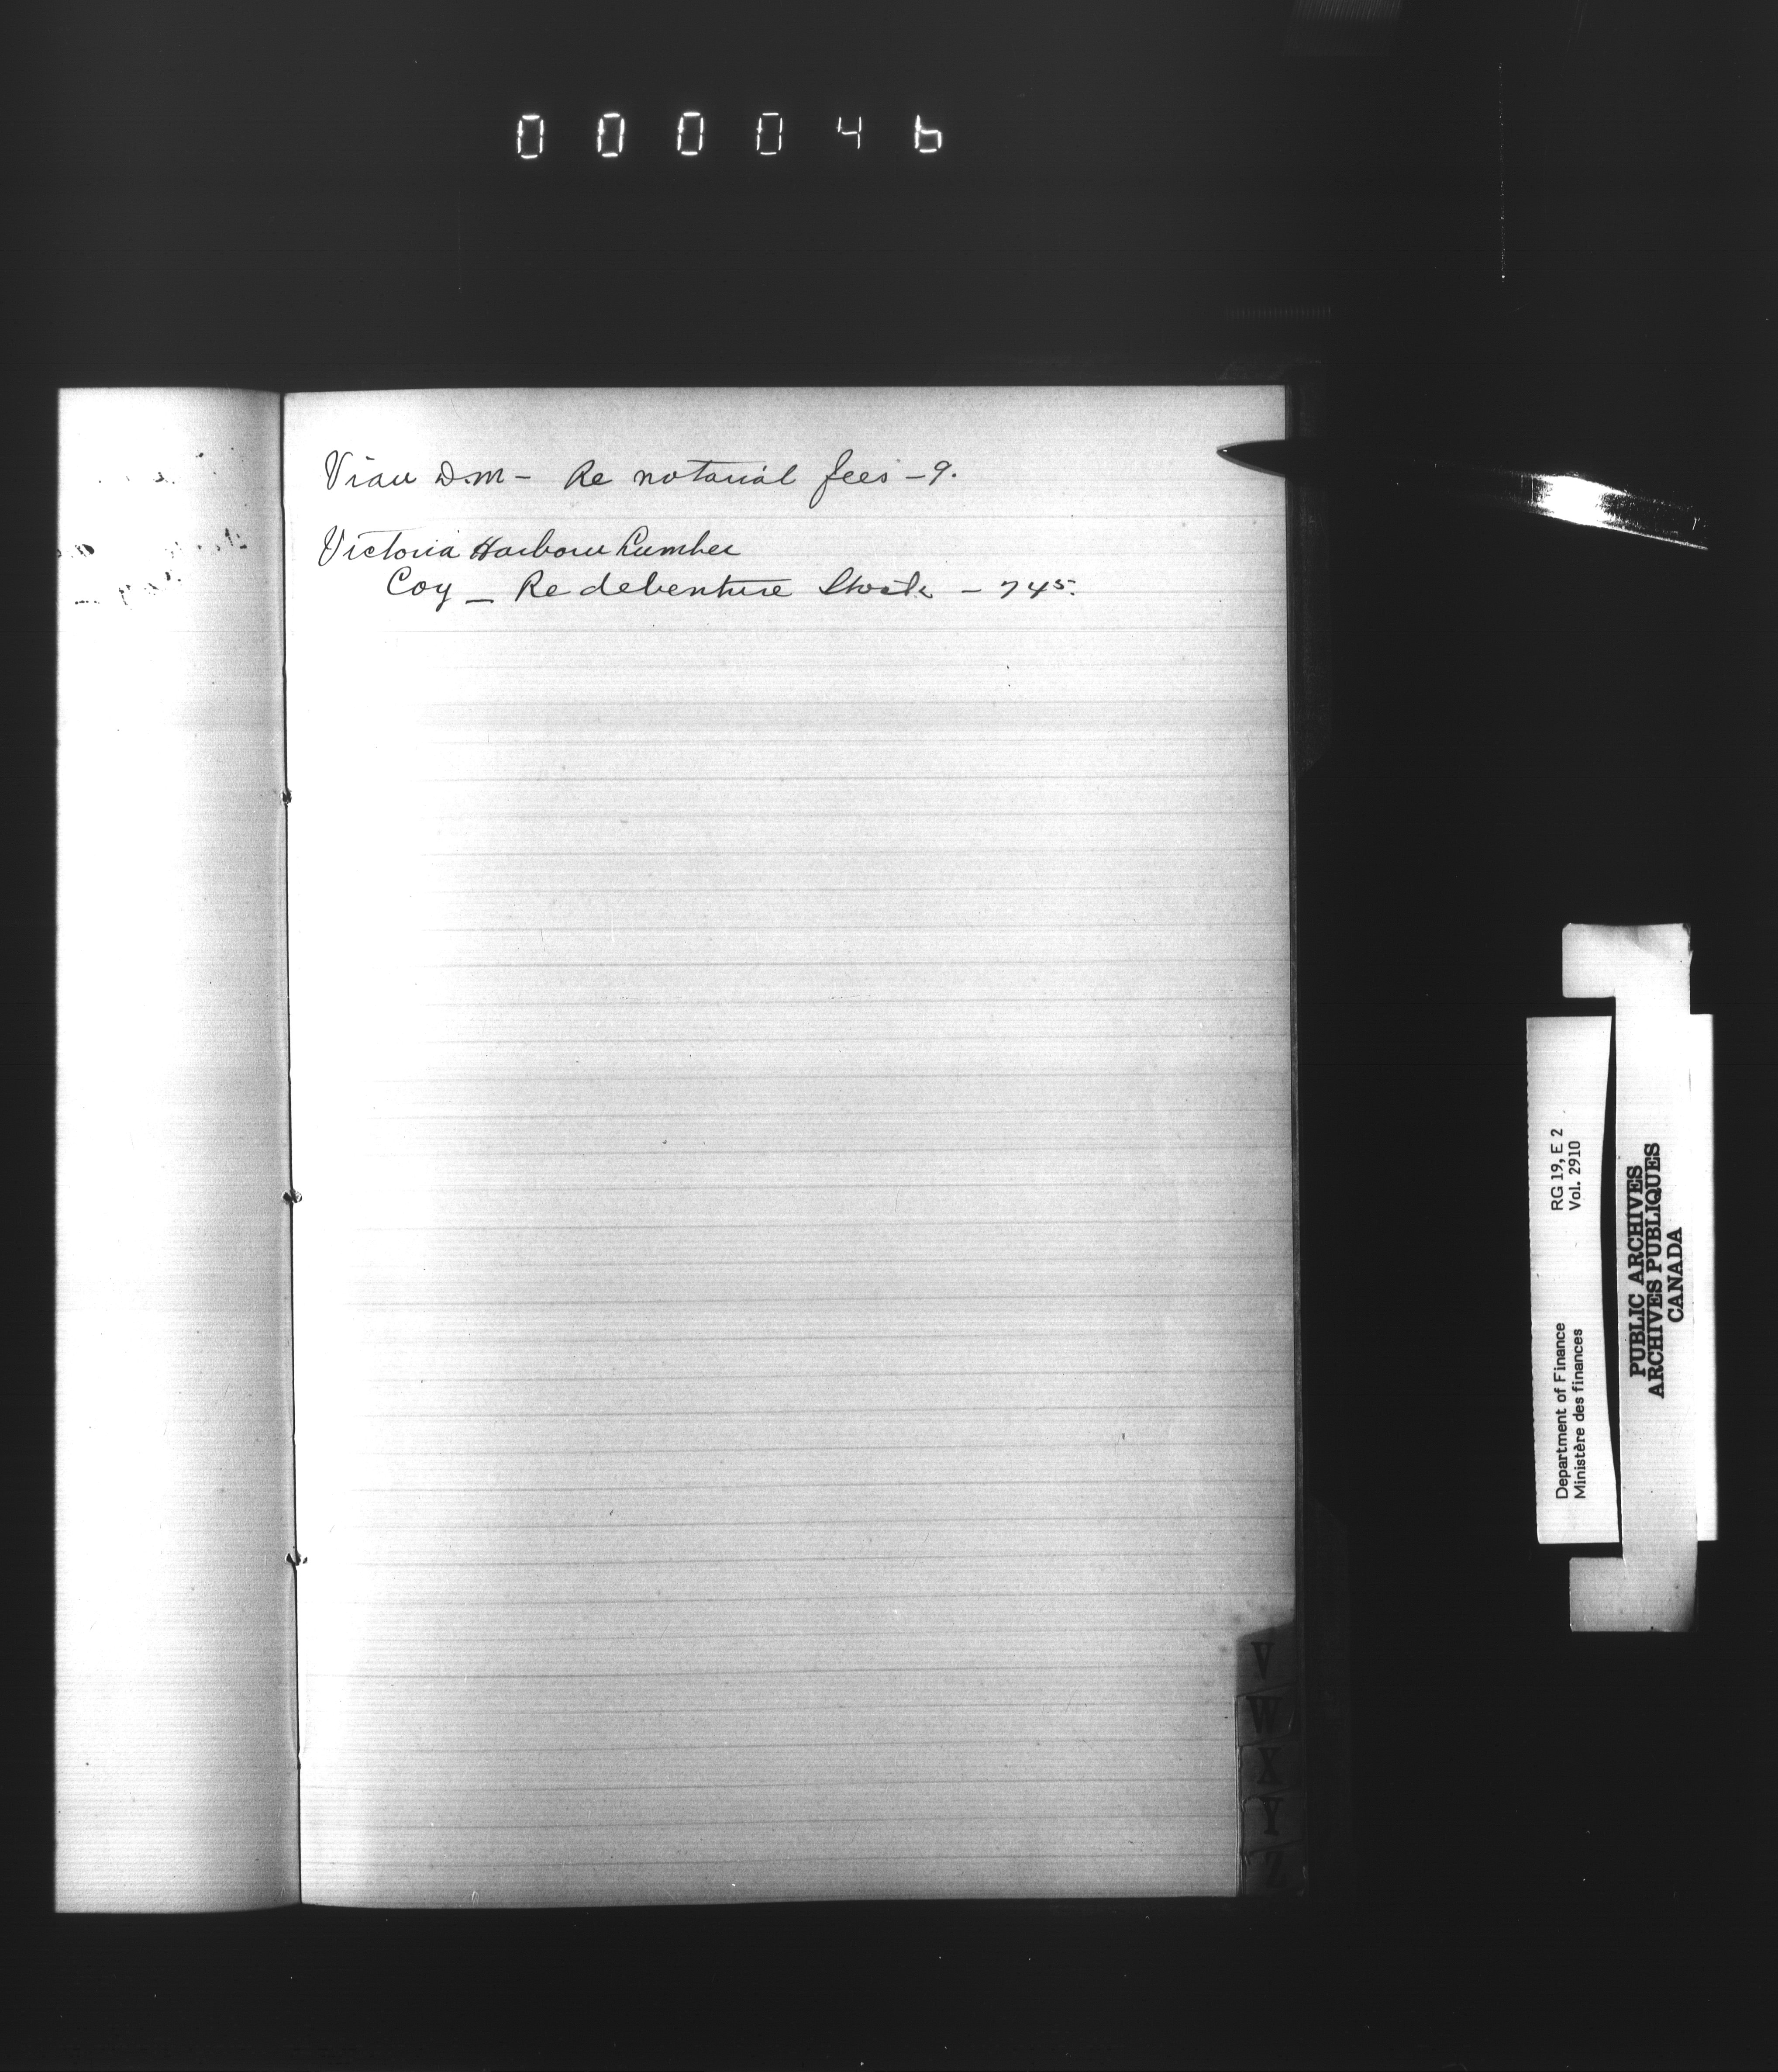 000046
Viau D.M – Re notarial fees – 9.
Victoria Harbour Lumber
Coy – Re debenture Stock – 745.
V
W
X
Y
Z
Department of Finance RG 19, E 2
Ministère des finances Vol. 2910
PUBLIC ARCHIVES
ARCHIVES PUBLIQUES
CANADA